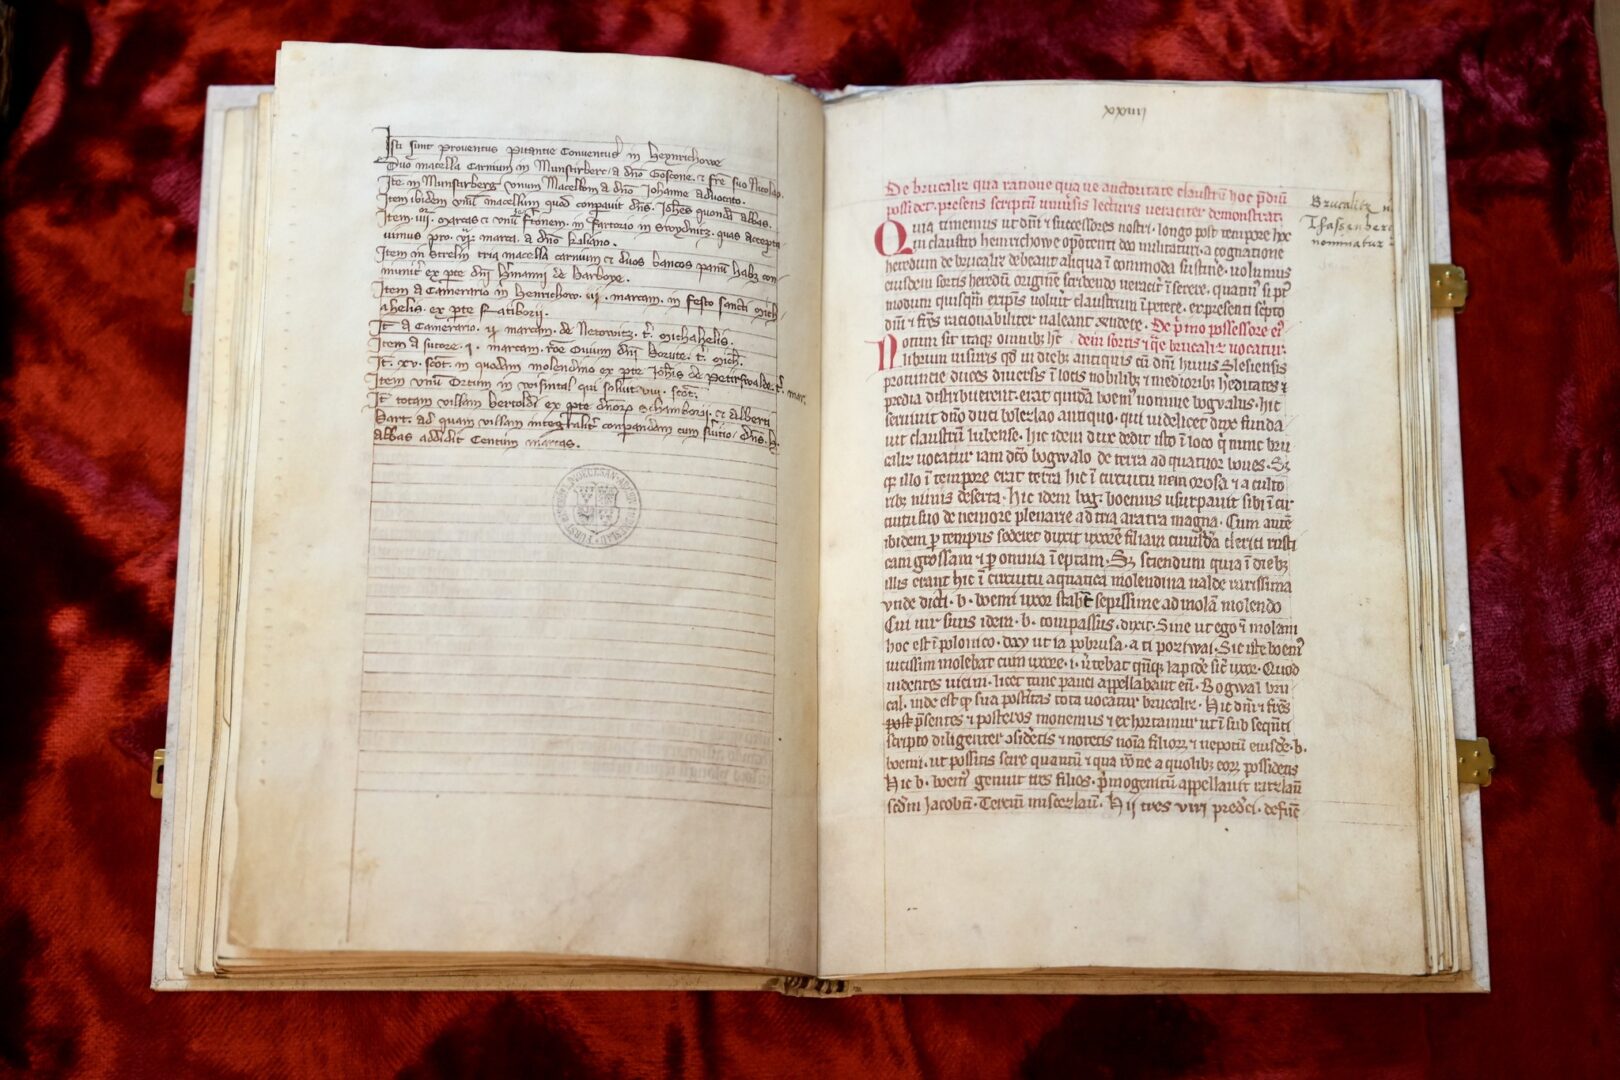 Isti sunt proventus pitantie Conventus in heynrichowe
Duo macella Carnium in Munstirberc a dno Goscone. et fre suo Nicolao.
Ite in Munstirberg vnum Macellum a dno Johanne advocato.
Item ibidem vnu macellum quod conparavit dns. Johes quonda abbas.
Item. iiii. marcas et vnu fertonem. in in Swydnitz. quas accepta
uimus pro. marca. a dno kiliano.
Item in Strelin tria macella carnium et duos bancos panu habz con
munit ex pte dni hmanni de Barboye.
Item a Camerario in henrichow. iii. marcam. in festo sancti mich
ahelis. ex pte Ratiborii.
It a Camerario. ii marcam. de Netowitz. t. Michahelis.
Item a sutore. i. marcam. roe Ouium dni Borute. t. mich.
It. xv. scot. in quodam molendino ex pte Johis de Petirswalde. t. mar.
Item vnu Ortum in qui soluit. viii. scot.
It totam villam bertoldi ex pte dnorz Schamborii. et Alberti
Bart. ad quam villam integralit conparandam cum dns. h.
abbas addidit Centum marcas.
xxiiii
De brucaliz qua ratione qua ue auctoritate claustru hoc pdiu
possidet. presens scriptu uniusis lecturis ueraciter demonstrat.
Quia timemus ut dni et successores nostri. longo post tempore hoc
in claustro heinrichowe opotenti deo militatur. a cognatione
heredum de brucaliz debeant aliqua i commoda sustine. uolumus
eiusdem sortis heredu. origine scribendo ueracit i serere. quatin si pt
modum quisqm eripus voluit claustrum i petere. ex presenti scpto
dni et fres rationabiliter ualeant rndere. De pmo possessore ei
dem sortis et qre brucaliz uocatur.
Notum sit itaqz omnibz hc
librum uisuris qd in diebz antiquis cu dni huius Slesiensis
prouincie duces diuersis i locis nobilibz et mediocribz heditates et
predia distribuerent. erat quida boem nomine bogvalus. hic
seruiuit dno duci bolezlao antiquo. qui uidelicet dux funda
uit claustru lubense. hic idem dux dedit isto i loco q nunc bru
caliz uocatur iam dco bogwalo de terra ad quatuor boues. Sz
qr illo i tempore erat terra hic i circuitu nemorosa et a culto
ribz nimis deserta. hic idem bog. boemus usurpauit sibi i cir
cuitu suo de nemore plenarie ad tria aratra magna. Cum aute
ibidem p tempus sederet duxit uxore filiam cuiusda clerici rusti
cam grossam et p omnia i eptam. Sz sciendum quia i diebz
illis erant hic i circuitu aquatica molendina ualde rarissima
vnde dicti. b. boemi uxor stabat sepissime ad mola molendo
Cui uir suus idem. b. compassus. dixit. Sine ut ego et molam
hoc est i polonico. day ut ia pobrusa. a ti poziwai. Sic iste boem
uicissim molebat cum uxore. i. utebat qnqz lapide sic uxor. Quod
uidentes uicini. licet tunc pauci appellabant eu. Bogwal bru
cal. inde est qr sua posteritas tota uocatur brucaliz. Hic dni et fres
post psentes et posteros monemus et exhortamur ut i sub sequti
scripto diligenter osidetis et notetis noia filiorz et nepotu eiusde. b.
boemi. ut possitis scire quantu et qua rone a quolibz eorz possidetis
Hic b. boem genuit tres filios. pmogenitu appellauit raczlau
scdm Jacobu. Terciu miscezlau. Hij tres viri predci. defunc
Brucalitz
Thassenberc
nominatur